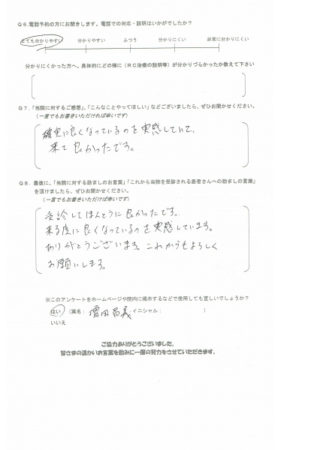 Q6. 電話予約の方にお聞きします。電話での対応・説明はいかがでしたか？
とても分かりやすい 分かりやすい ふつう 分かりにくい 非常に分かりにくい
分かりにくかった方へ、具体的にどの様に（RC治療の説明等）が分かりづらかったか教えて下さい
Q7. 「当院に対するご感想」、「こんなことやってほしい」などございましたら、ぜひお聞かせください。
（一言でもお書きいただければ幸いです）
確実に良くなっているのを実感していて、
来て良かったです。
Q8. 最後に、「当院に対する励ましのお言葉」「これから当院を受診される患者さんへの励ましの言葉」
を頂けましたら、ぜひお聞かせください。
（一言でもお書きいただければ幸いです）
受診してほんとうに良かったです。
来る度に良くなっているのを実感しています。
ありがとうございます。これからもよろしく
お願いします。
※このアンケートをホームページや院内に掲示するなどで使用しても宜しいでしょうか？
はい （実名： イニシャル： ）
いいえ
ご協力ありがとうございました。
皆さまの温かいお言葉を励みに一層の努力をさせていただきます。